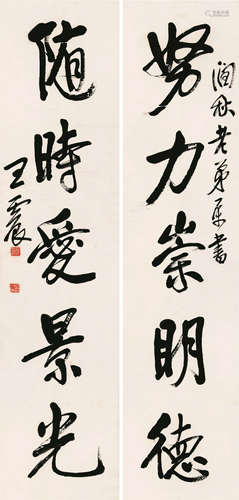 润秋老弟属書
努力崇明德
随時愛景光
王震